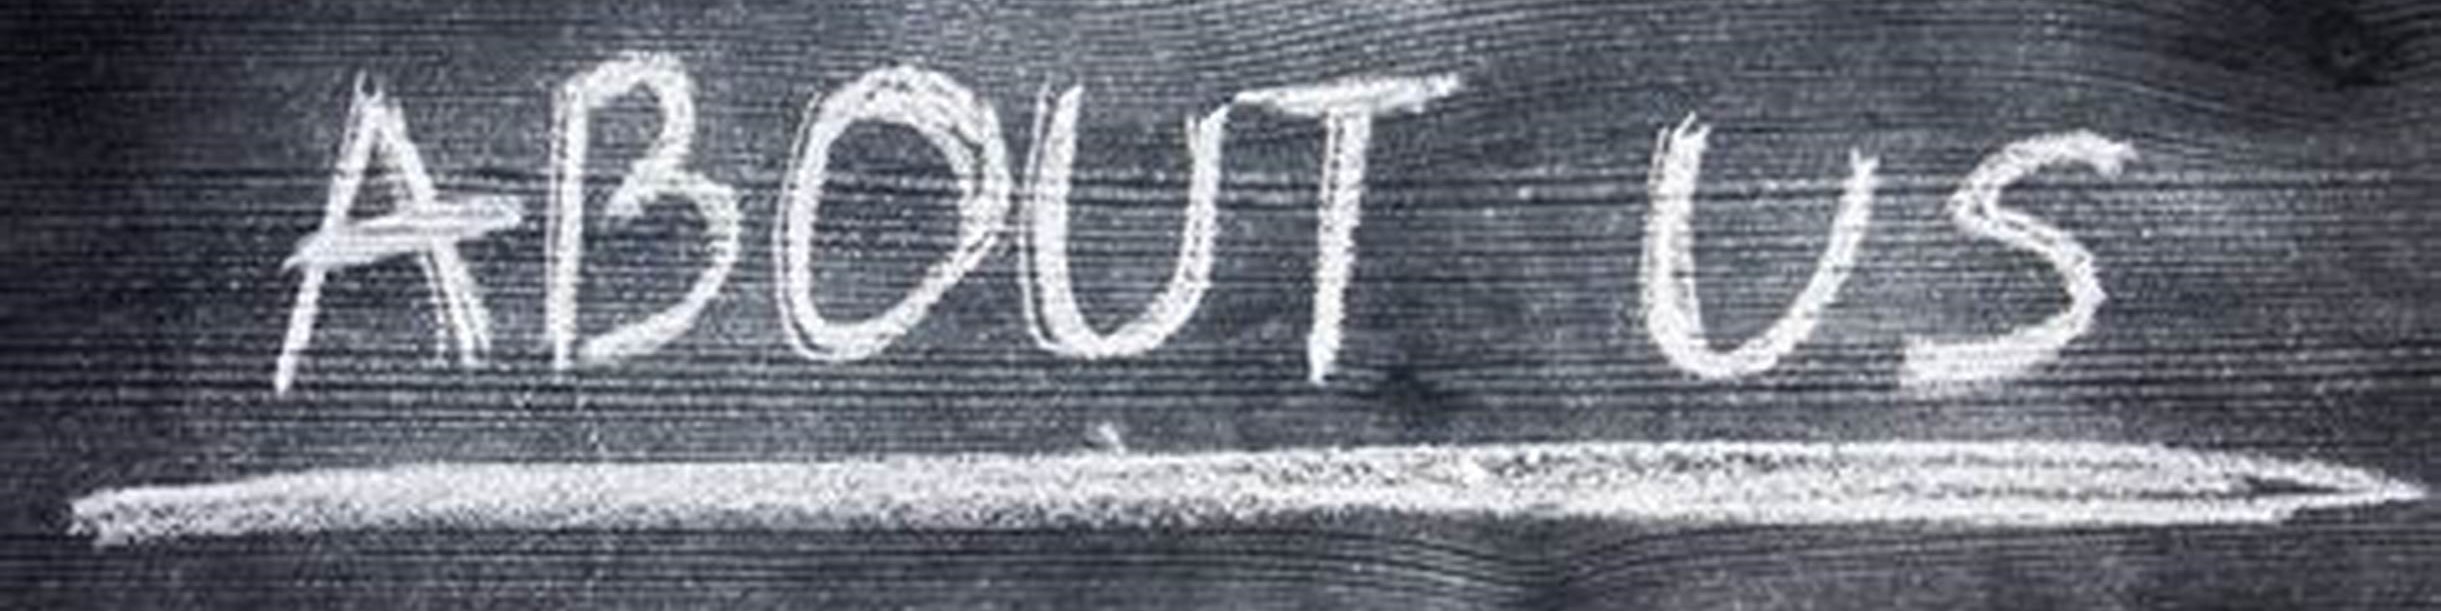 ABOUT US